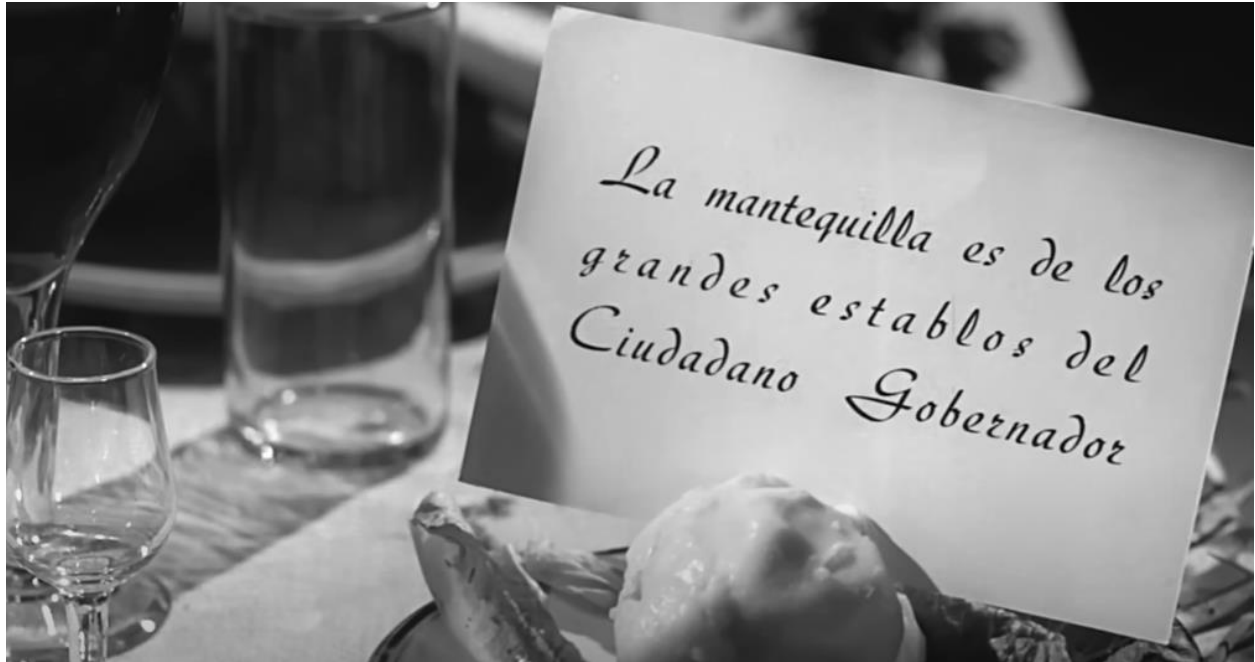 La mantequilla es de los
grandes establos del
Ciudadano Gobernador